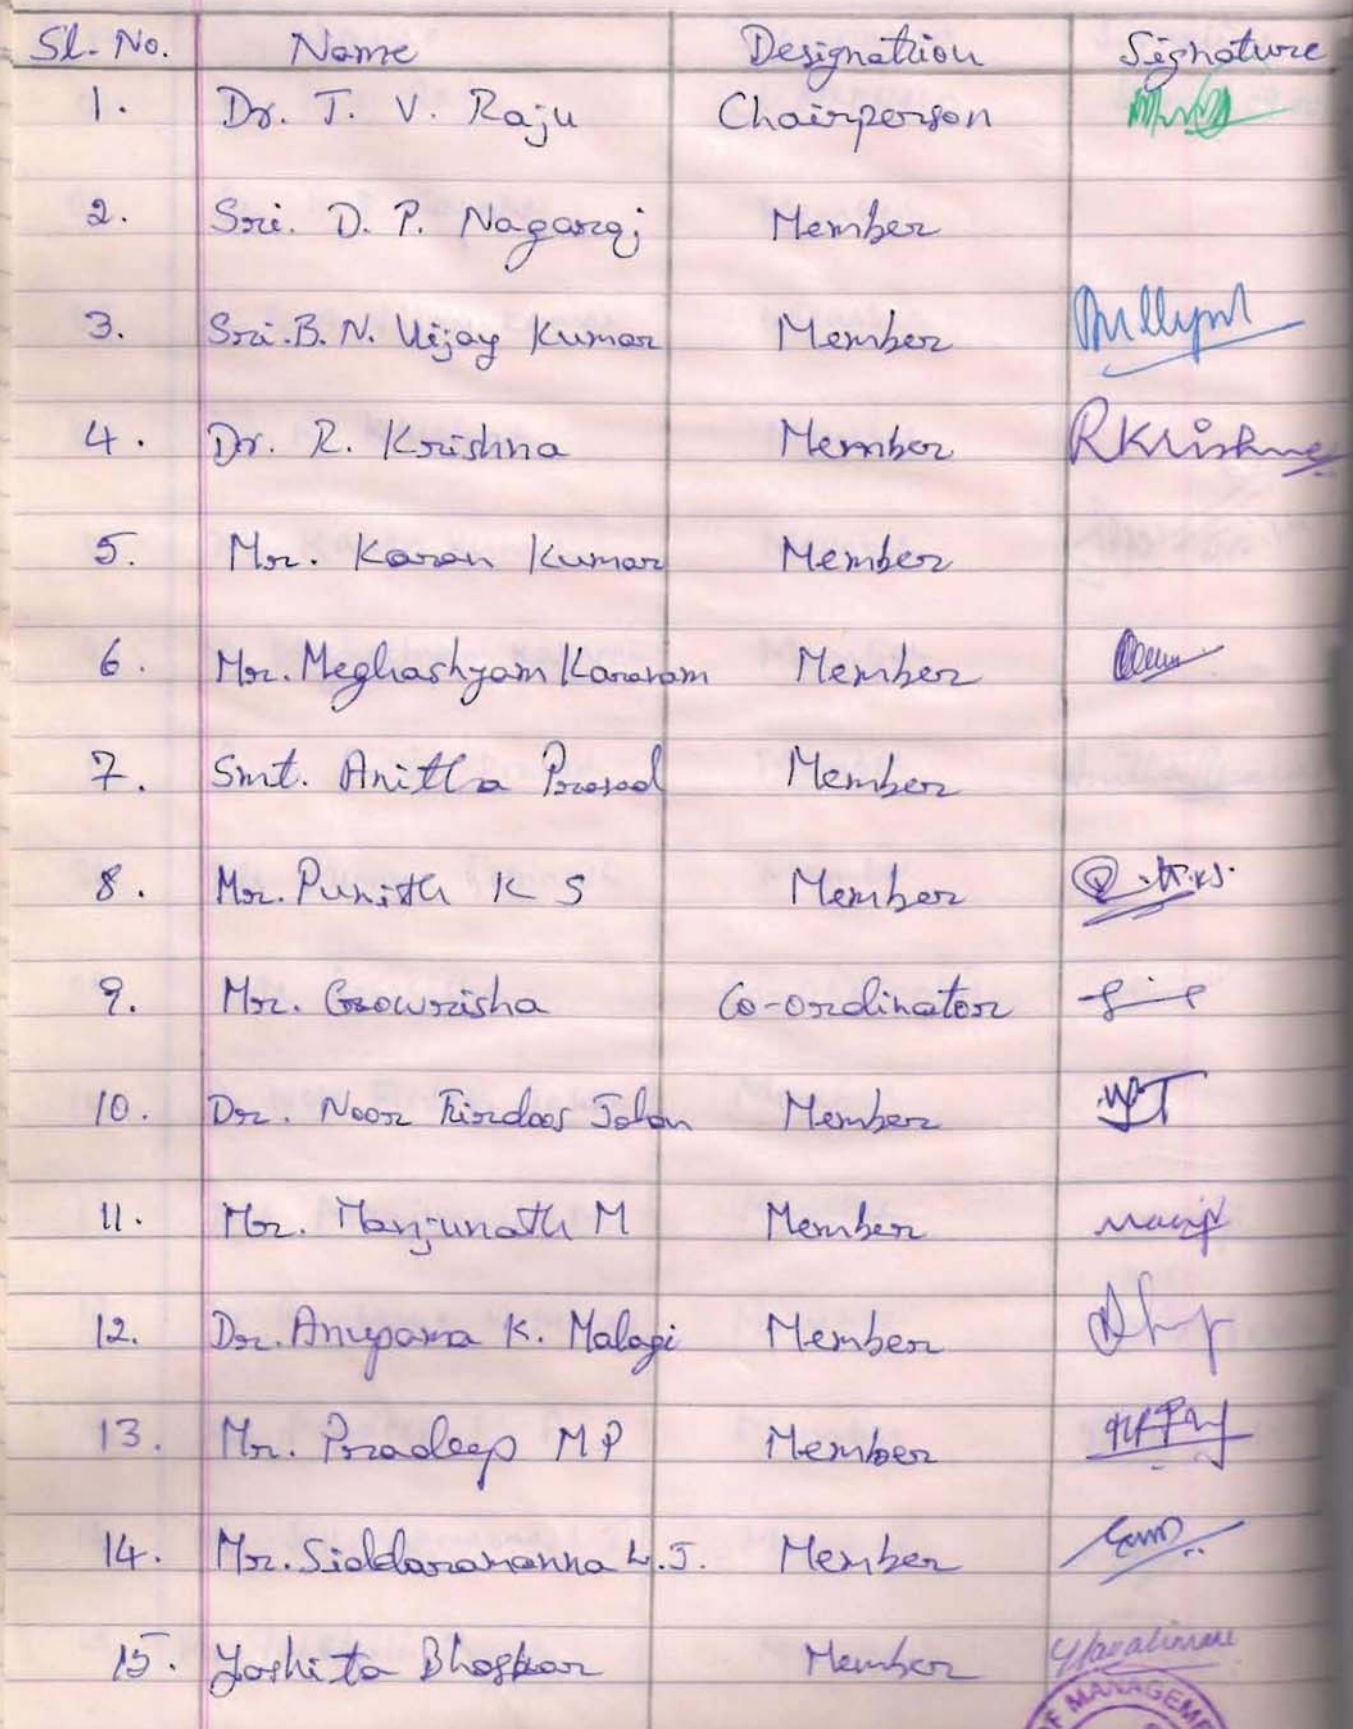 Sl. No. Name Designation Signature
1. Dr. T. V. Raju Chairperson
2. Sri. D. P. Nagaraj Member
3. Sri. B. N. Vijay Kumar Member
4. Dr. R. Krishna Member RKrishna
5. Mr. Karan Kumar Member
6. Mr. Meghashyam Karanam Member
7. Smt. Anitha Prasad Member
8. Mr. Punith K S Member
9. Mr. Gowrisha Co-ordinator
10. Dr. Noor Firdoos Jahan Member
11. Mr. Manjunath M Member
12. Dr. Anupama K. Malagi Member
13. Mr. Pradeep M P Member
14. Mr. Siddaramanna Member
15. Yoshita Bhaskar Member
OF MANAGEM